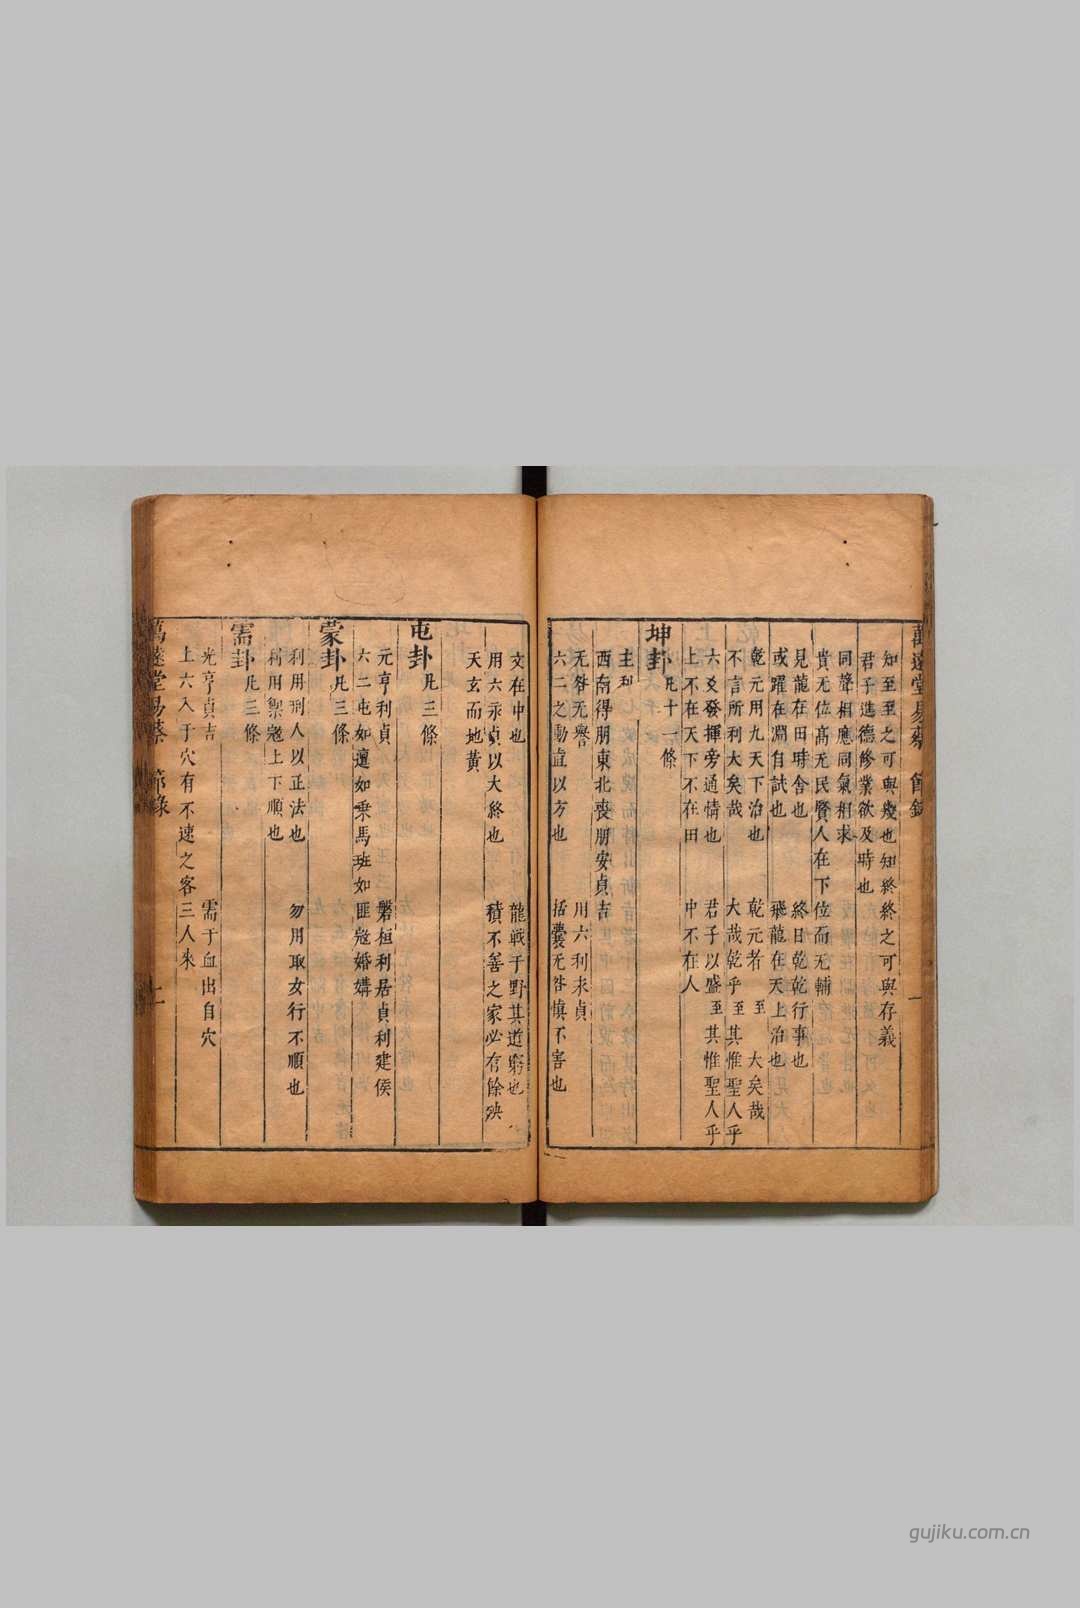 萬遠堂易蔡 節錄 一
知至至之可與幾也知終終之可與存義
君子進德修業欲及時也
同聲相應同氣相求
貴无位高无民賢人在下位而无輔
見龍在田時舍也 終日乾乾行事也
或躍在淵自試也 飛龍在天上治也
乾元用九天下治也 乾元者 至 大矣哉
不言所利大矣哉 大哉乾乎 至 其惟聖人乎
六爻發揮旁通情也 君子以盛 至 其惟聖人乎
上不在天下不在田 中不在人
坤卦 凡十一條
主利
西南得朋東北喪朋安貞吉
无咎无譽 用六利永貞
六二之動直以方也 括囊无咎慎不害也
文在中也 龍戰于野其道窮也
用六永貞以大終也 積不善之家必有餘殃
天玄而地黃
屯卦 凡三條
元亨利貞 磐桓利居貞利建侯
六二屯如邅如乘馬班如匪寇婚媾
蒙卦 凡三條
利用刑人以正法也 勿用取女行不順也
利用禦寇上下順也
需卦 凡三條
光亨貞吉 需于血出自穴
上六入于穴有不速之客三人來
萬遠堂易蔡 節錄 二
gujiku.com.cn